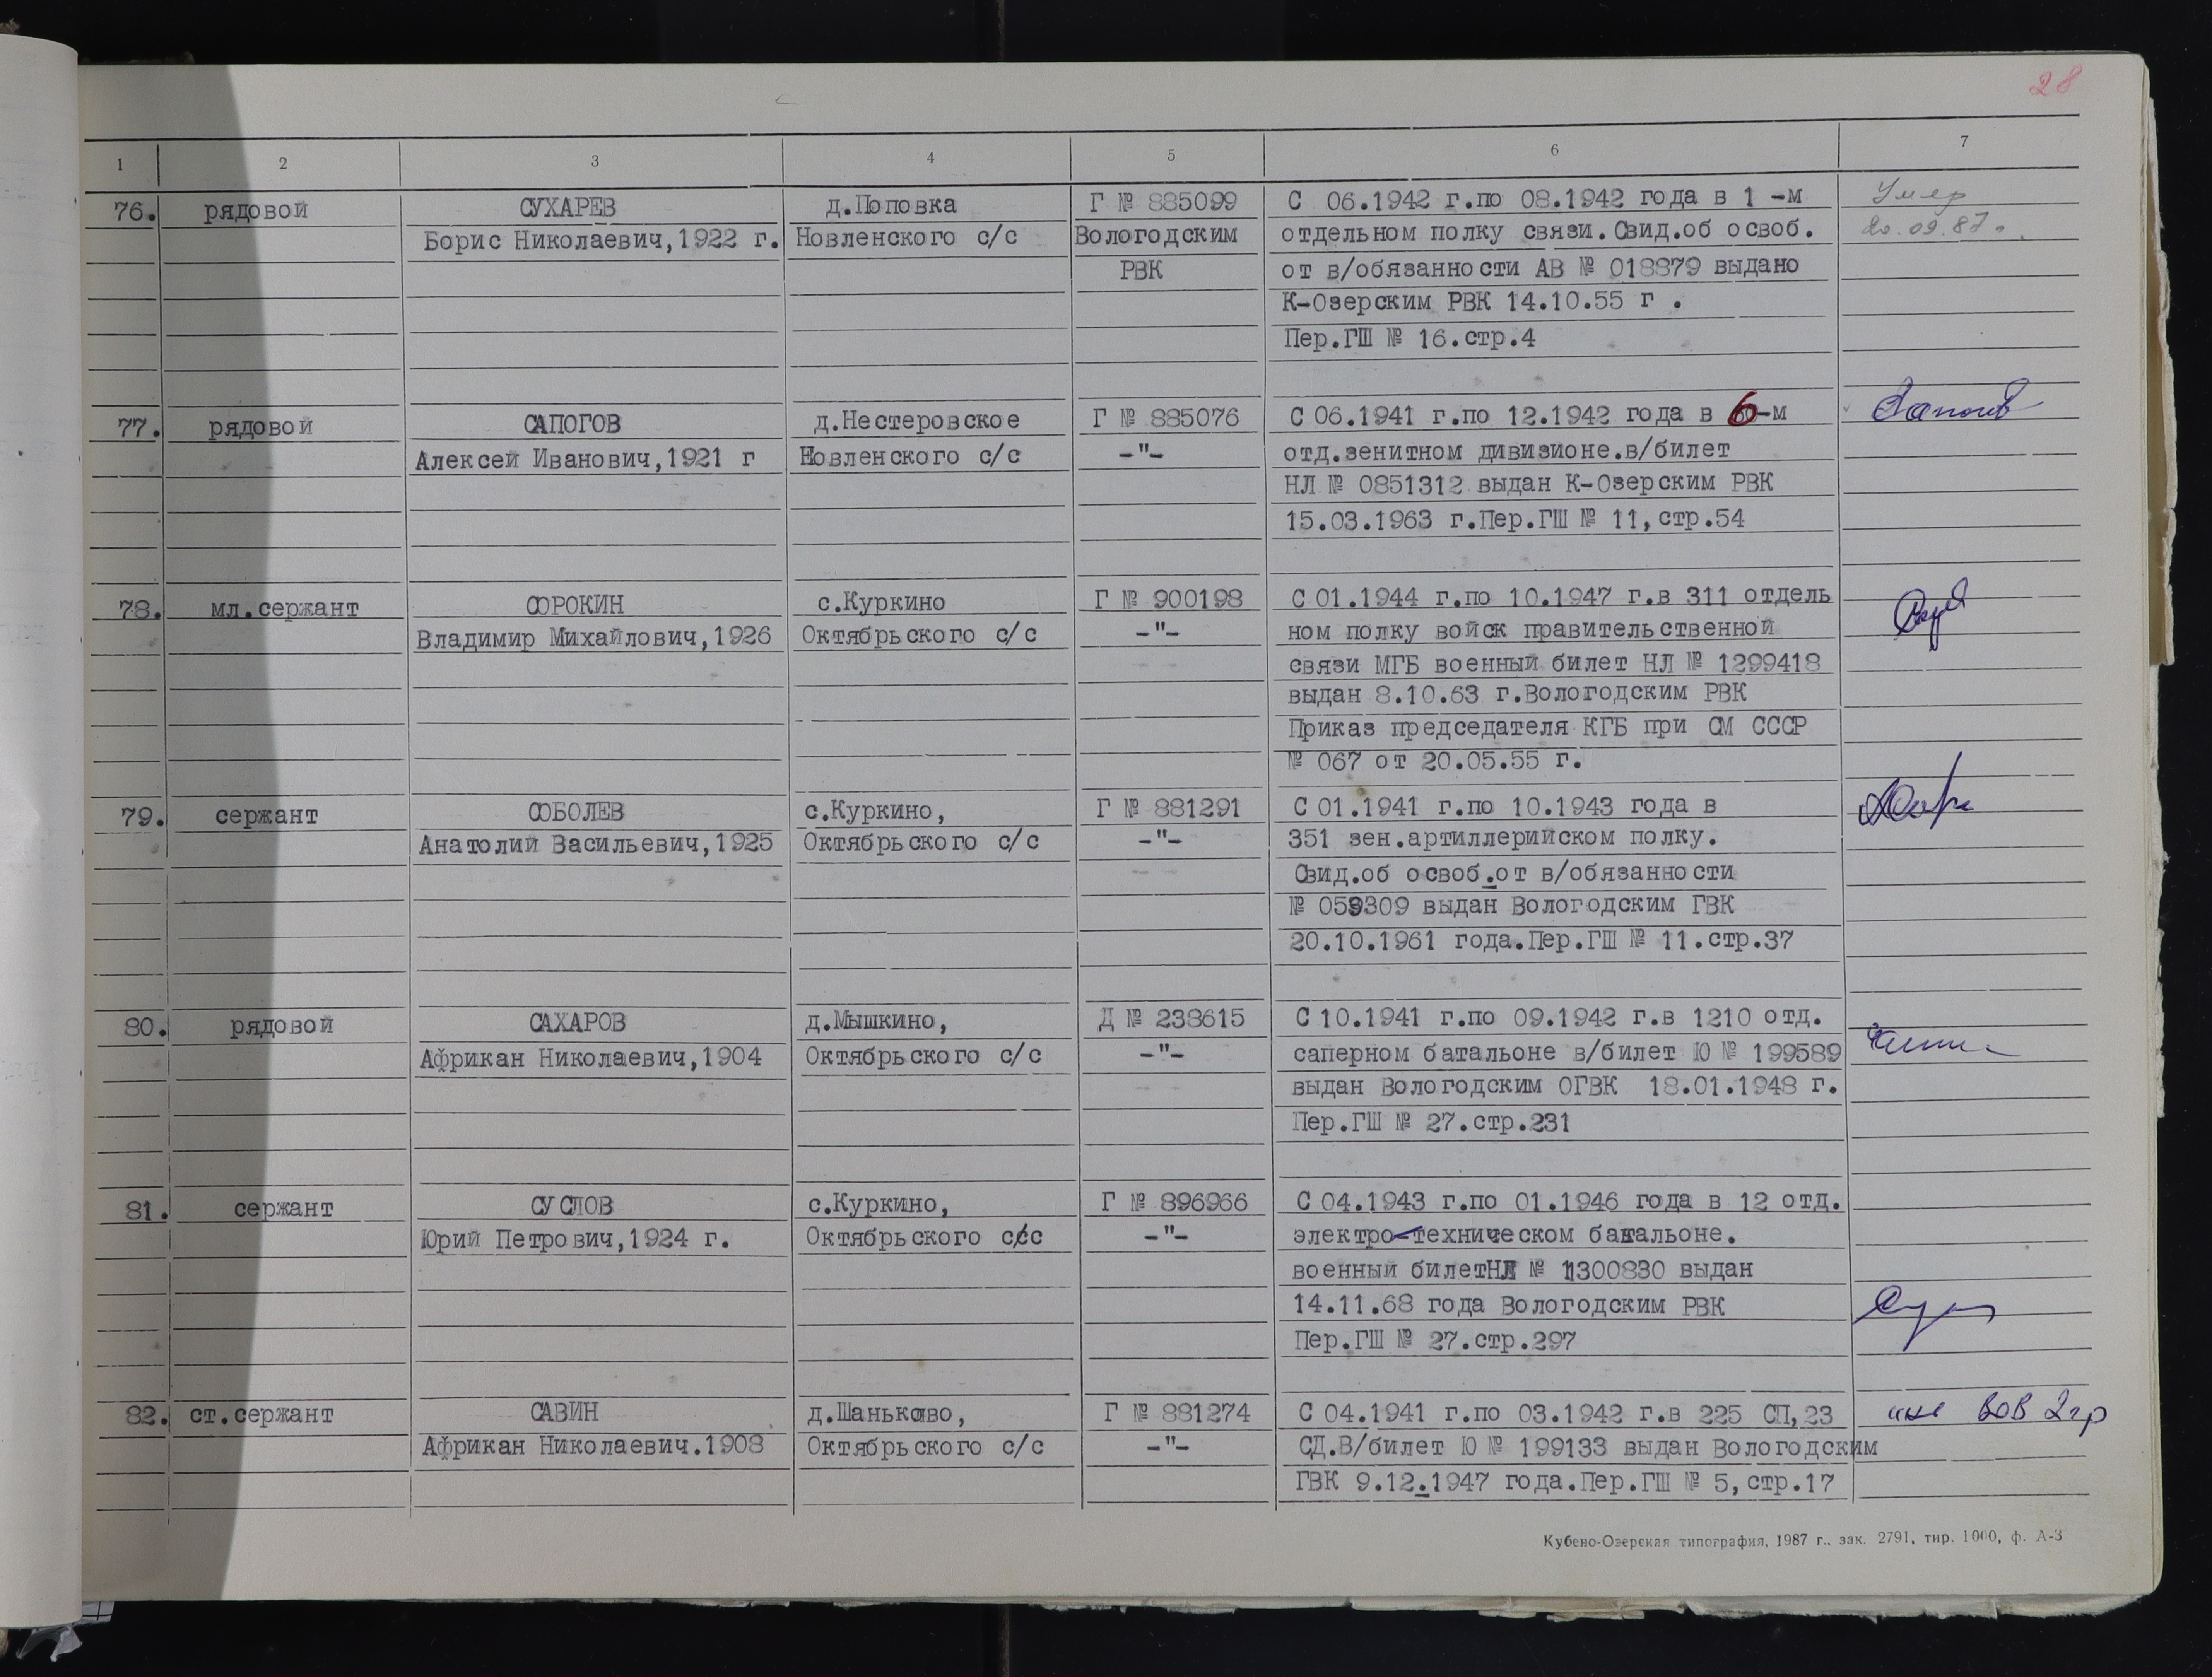 28
1 2 3 4 5 6 7
76. рядовой СУХАРЕВ д.Поповка Г № 885099 С 06.1942 г.по 08.1942 года в 1 -м Умер
Борис Николаевич,1922 г. Новленского с/с Вологодским отдельном полку связи.Свид.об освоб. 20.09.87г.
РВК от в/обязанности АВ № 018879 выдано
К-Озерским РВК 14.10.55 г .
Пер.ГШ № 16.стр.4
77. рядовой САПОГОВ д.Нестеровское Г № 885076 С 06.1941 г.по 12.1942 года в 6-м
Алексей Иванович,1921 г Новленского с/с -"- отд.зенитном дивизионе.в/билет
НЛ № 0851312 выдан К-Озерским РВК
15.03.1963 г.Пер.ГШ № 11,стр.54
78. мл.сержант СОРОКИН с.Куркино Г № 900198 С 01.1944 г.по 10.1947 г.в 311 отдель
Владимир Михайлович,1926 Октябрьского с/с -"- ном полку войск правительственной
связи МГБ военный билет НЛ № 1299418
выдан 8.10.63 г.Вологодским РВК
Приказ председателя КГБ при СМ СССР
№ 067 от 20.05.55 г.
79. сержант СОБОЛЕВ с.Куркино, Г № 881291 С 01.1941 г.по 10.1943 года в
Анатолий Васильевич,1925 Октябрьского с/с -"- 351 зен.артиллерийском полку.
Свид.об освоб.от в/обязанности
№ 059309 выдан Вологодским ГВК
20.10.1961 года.Пер.ГШ № 11.стр.37
80. рядовой САХАРОВ д.Мышкино, Д № 238615 С 10.1941 г.по 09.1942 г.в 1210 отд.
Африкан Николаевич,1904 Октябрьского с/с -"- саперном батальоне в/билет Ю № 199589
выдан Вологодским ОГВК 18.01.1948 г.
Пер.ГШ № 27.стр.231
81. сержант СУСЛОВ с.Куркино, Г № 896966 С 04.1943 г.по 01.1946 года в 12 отд.
Юрий Петрович,1924 г. Октябрьского с/с -"- электро-техническом батальоне.
военный билетНЛ № 1300830 выдан
14.11.68 года Вологодским РВК
Пер.ГШ № 27.стр.297
82. ст.сержант САВИН д.Шаньково, Г № 881274 С 04.1941 г.по 03.1942 г.в 225 СП,23 инв ВОВ 2гр
Африкан Николаевич.1908 Октябрьского с/с -"- СД.В/билет Ю № 199133 выдан Вологодским
ГВК 9.12.1947 года.Пер.ГШ № 5,стр.17
Кубено-Озерская типография, 1987 г., зак. 2791, тир. 1000, ф. А-3